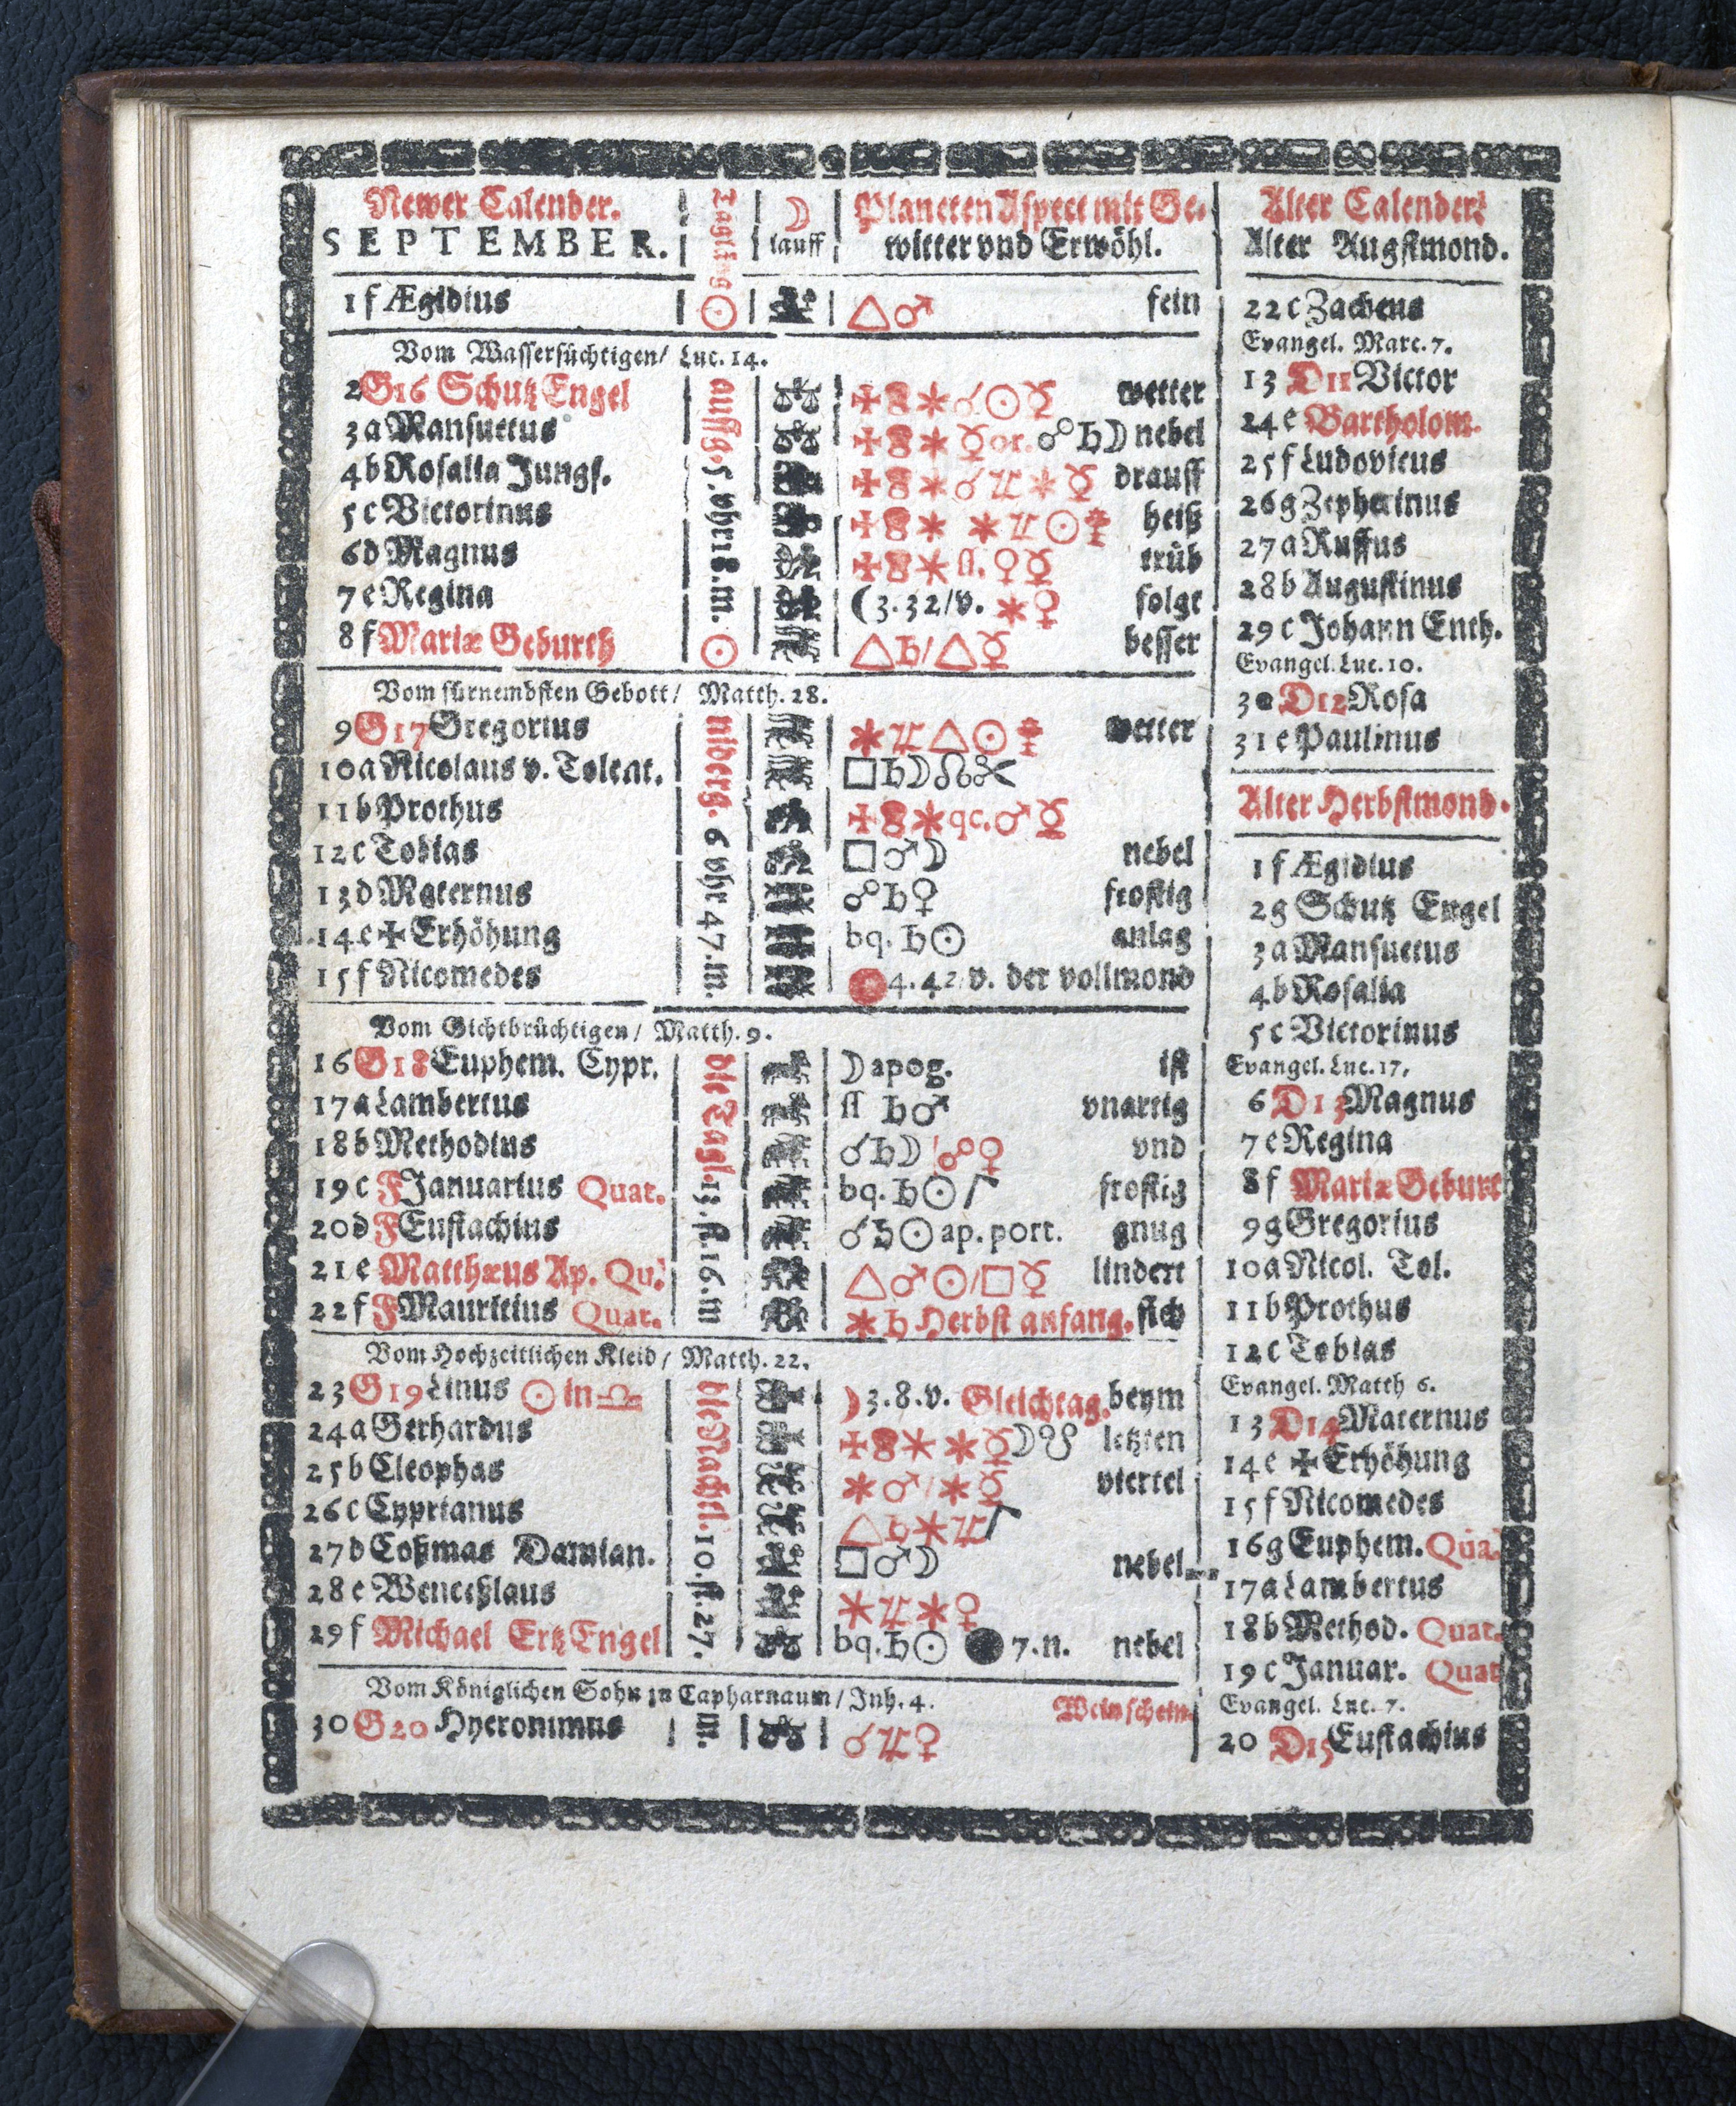 Newer Calender. Taglång ☽ Planeten Aspect mit Ge-  Alter Calender.
SEPTEMBER. lauff witter vnd Erwöhl. Alter Augstmond.
1 f Ægidius ☉ △♂ fein
Vom Wassersüchtigen/ Luc. 14.
2 G16 Schutz Engel ☌☉☿ wetter
3 a Mansuetus ☿ or. ☍♄☽ nebel
4 b Rosalia Jungf. ☌♃✶☿ drauff
5 c Victorinus ✶♃☉ heiß
6 d Magnus ſſ. ♀☿ trüb
7 e Regina (3.32/v. ✶♀ folgt
8 f Mariæ Geburth ☉ △♄/△☿ besser
auffg. 5. vhr 18. m.
Vom fürnembsten Gebott/ Matth. 28.
9 G17 Gregorius ✶♃△☉ wetter
10 a Nicolaus v. Tolent. □♄☽☊
11 b Prothus qc. ♂☿
12 c Tobias □♂☽ nebel
13 d Maternus ☍♄♀ frostig
14 e ✠ Erhöhung bq. ♄☉ anlag
15 f Nicomedes 4.42/v. der vollmond
niderg. 6 vhr 47. m.
Vom Gichtbrüchtigen/ Matth. 9.
16 G18 Euphem. Cypr. ☽ apog. ist
17 a Lambertus ſſ ♄♂ vnartig
18 b Methodius ☌♄☽/☍♀ vnd
19 c F Januarius Quat. bq. ♄☉ frostig
20 d F Eustachius ☌♄☉ ap. port. gnug
21 e Matthæus Ap. Qu. △♂☉/□☿ lindert
22 f F Mauritius Quat. ✶♄ Herbst anfang. sich
die Tagl. 13. st. 16. m
Vom Hochzeitlichen Kleid/ Matth. 22.
23 G19 Linus ☉ in ♎ ☽3.8.v. Gleichtag. beym
24 a Gerhardus ✶☿☽☋ letzten
25 b Cleophas ✶♂/✶☿ viertel
26 c Cyprianus △♄✶♃
27 d Coßmas Damian. □♂☽ nebel
28 e Wenceßlaus ✶♃✶♀
29 f Michael Ertz Engel bq. ♄☉ ● 7. n. nebel
die Nachtl. 10. st. 27.
Vom Königlichen Sohn zu Capharnaum/ Joh. 4. Wein schein.
30 G20 Hyeronimus m. ☌♃♀
22 c Zacheus
Evangel. Marc. 7.
13 D11 Victor
24 e Bartholom.
25 f Ludovicus
26 g Zepherinus
27 a Ruffus
28 b Augustinus
29 c Johann Enth.
Evangel. Luc. 10.
30 D12 Rosa
31 e Paulinus
Alter Herbstmond.
1 f Ægidius
2 g Schutz Engel
3 a Mansuetus
4 b Rosalia
5 c Victorinus
Evangel. Luc. 17.
6 D13 Magnus
7 e Regina
8 f Mariæ Geburt
9 g Gregorius
10 a Nicol. Tol.
11 b Prothus
12 c Tobias
Evangel. Matth 6.
13 D14 Maternus
14 e ✠ Erhöhung
15 f Nicomedes
16 g Euphem. Qua.
17 a Lambertus
18 b Method. Quat.
19 c Januar. Quat
Evangel. Luc. 7.
20 D15 Eustachius